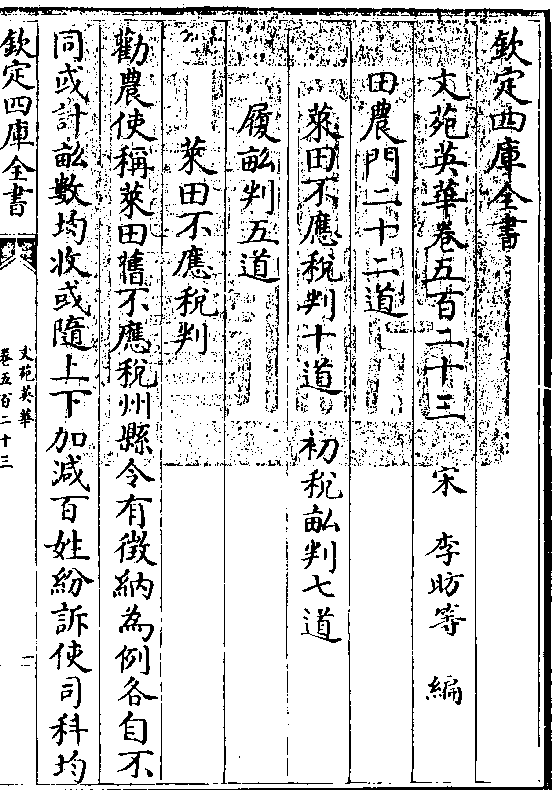 欽定四庫全書
文苑英華卷五百二十三 宋 李昉等 編
田農門二十二道
萊田不應稅判十道 初稅畝判七道
履畝判五道
萊田不應稅判
勸農使稱萊田舊不應稅州縣令有徵納為例各自不
同或計畝數均收或隨上下加減百姓紛訴使司科均
欽定四庫全書
文苑英華
卷五百二十三
一